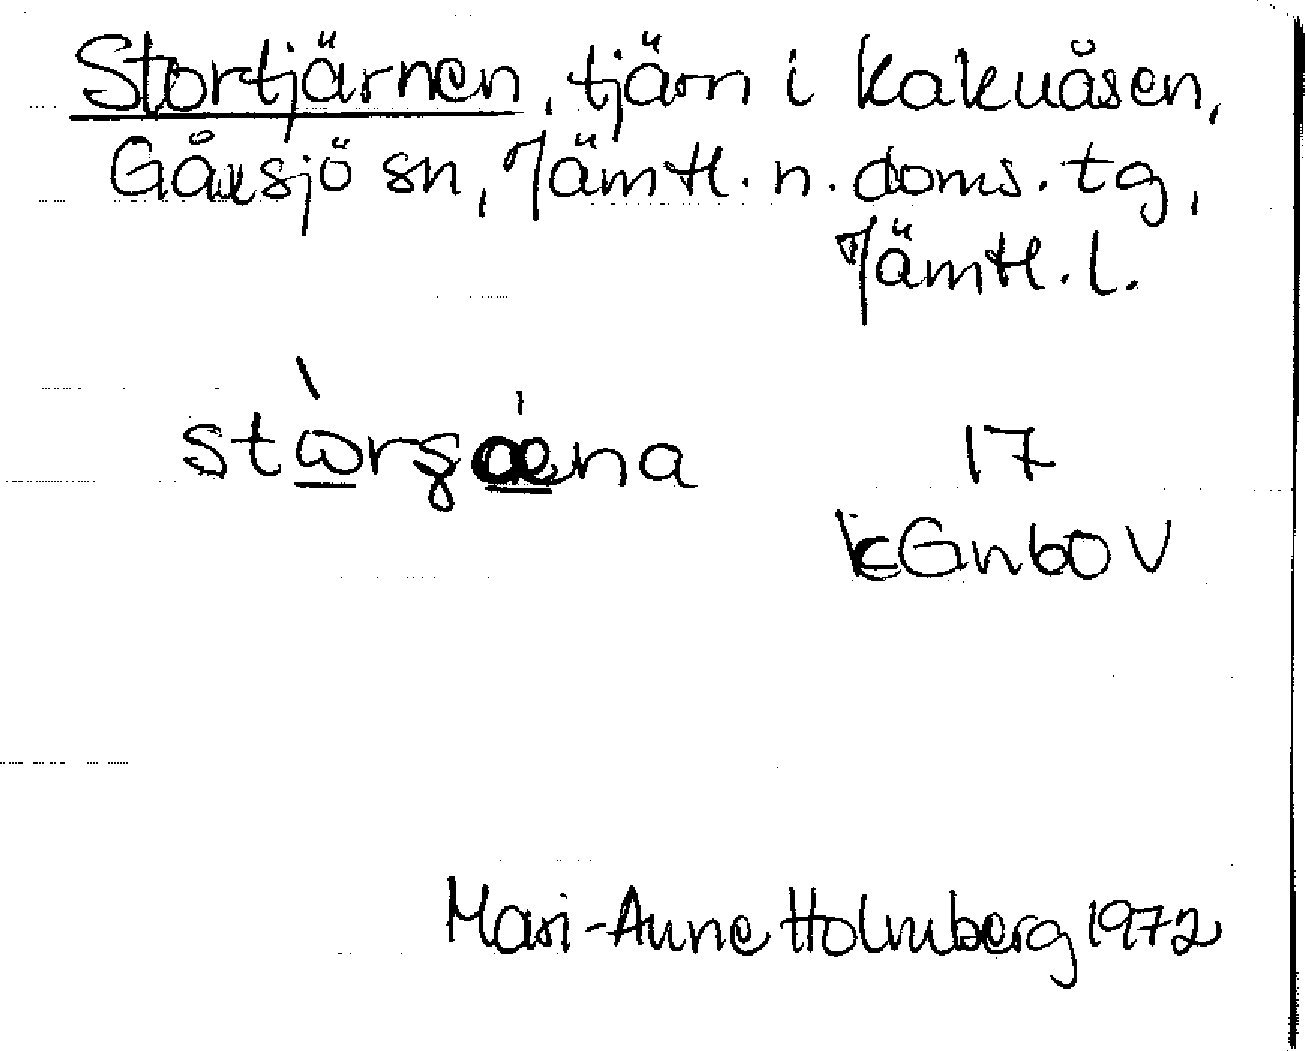 Stortjärnen, tjärn i Kakuåsen,
Gåxsjö sn, Jämtl. n. doms. tg,
Jämtl. l.
17
Mari-Anne Holmberg 1972